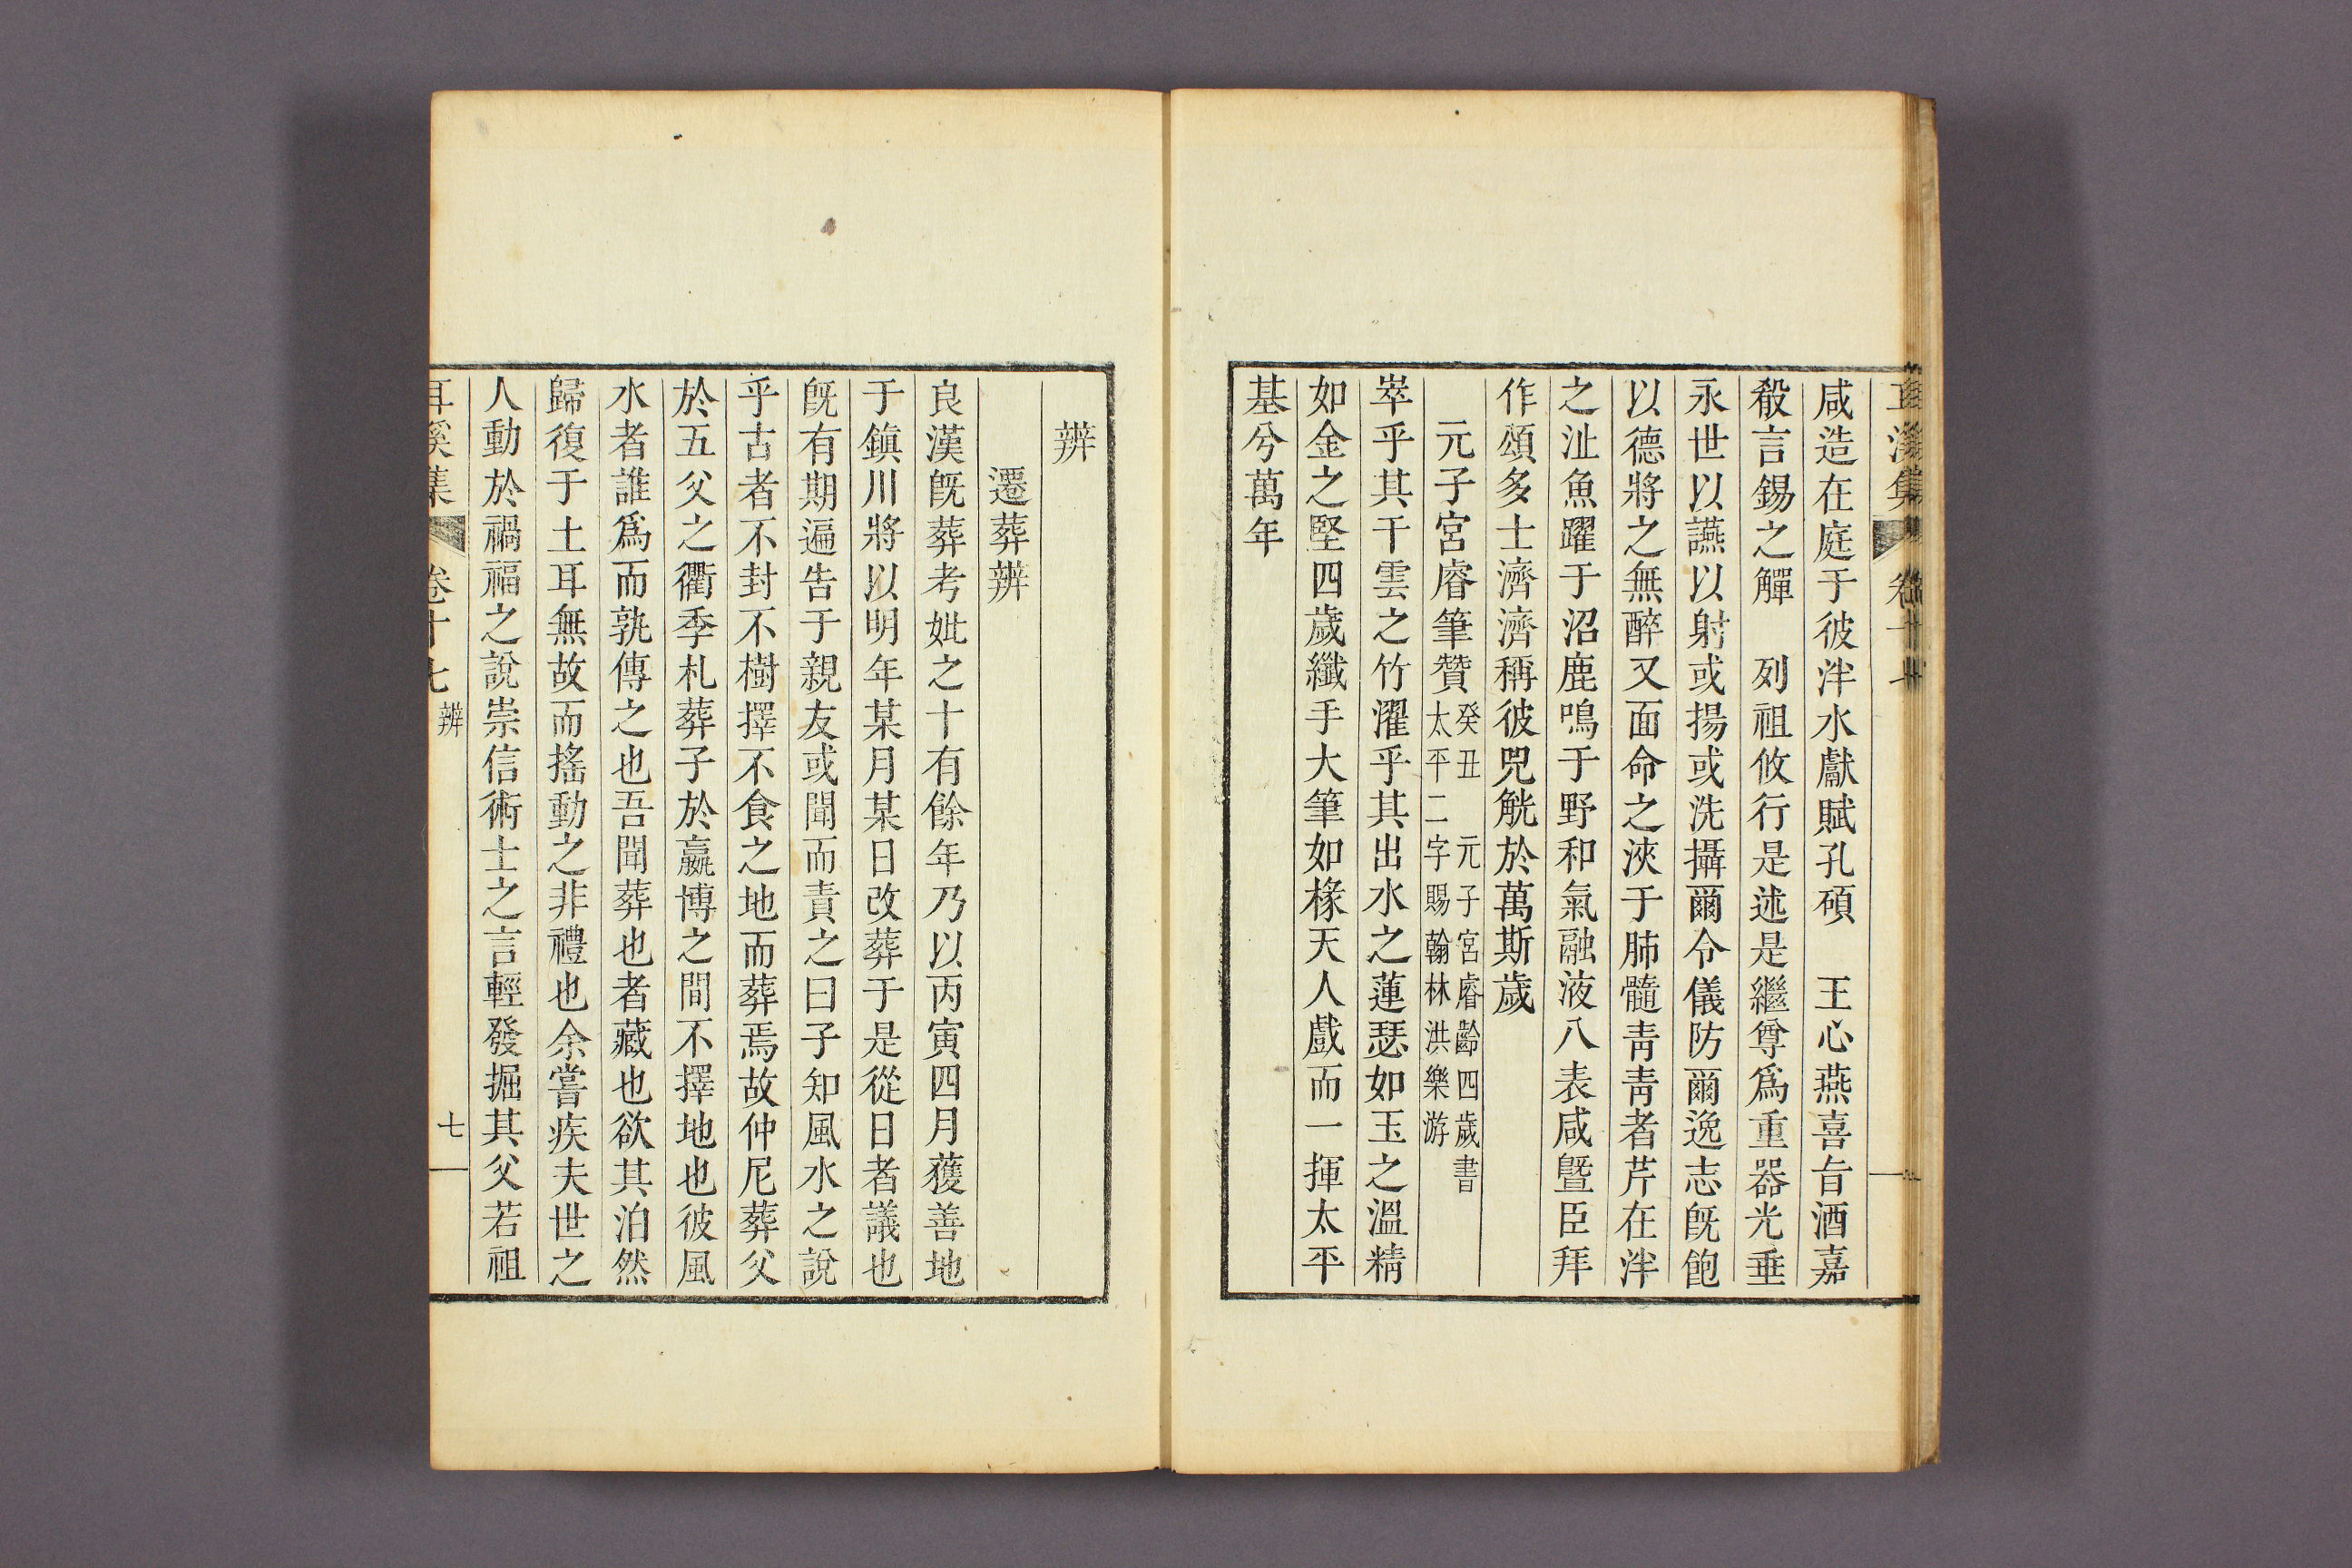 咸造在庭于彼泮水獻賦孔碩　王心燕喜旨酒嘉
殽言錫之觶　列祖攸行是述是繼尊爲重器光垂
永世以讌以射或揚或洗攝爾令儀防爾逸志旣飽
以德將之無醉又面命之浹于肺髓靑靑者芹在泮
之沚魚躍于沼鹿鳴于野和氣融液八表咸曁臣拜
作頌多士濟濟稱彼兕觥於萬斯歲
元子宮睿筆贊
癸丑　元子宮睿齡四歲書
太平二字賜翰林洪樂游
崒乎其干雲之竹濯乎其出水之蓮瑟如玉之溫精
如金之堅四歲纖手大筆如椽天人戲而一揮太平
基兮萬年
辨
遷葬辨
良漢旣葬考妣之十有餘年乃以丙寅四月獲善地
于鎭川將以明年某月某日改葬于是從日者議也
旣有期遍告于親友或聞而責之曰子知風水之說
乎古者不封不樹擇不食之地而葬焉故仲尼葬父
於五父之衢季札葬子於嬴博之間不擇地也彼風
水者誰爲而孰傳之也吾聞葬也者藏也欲其泊然
歸復于土耳無故而搖動之非禮也余嘗疾夫世之
人動於禍福之說崇信術士之言輕發掘其父若祖
耳溪集　卷十七　辨　七